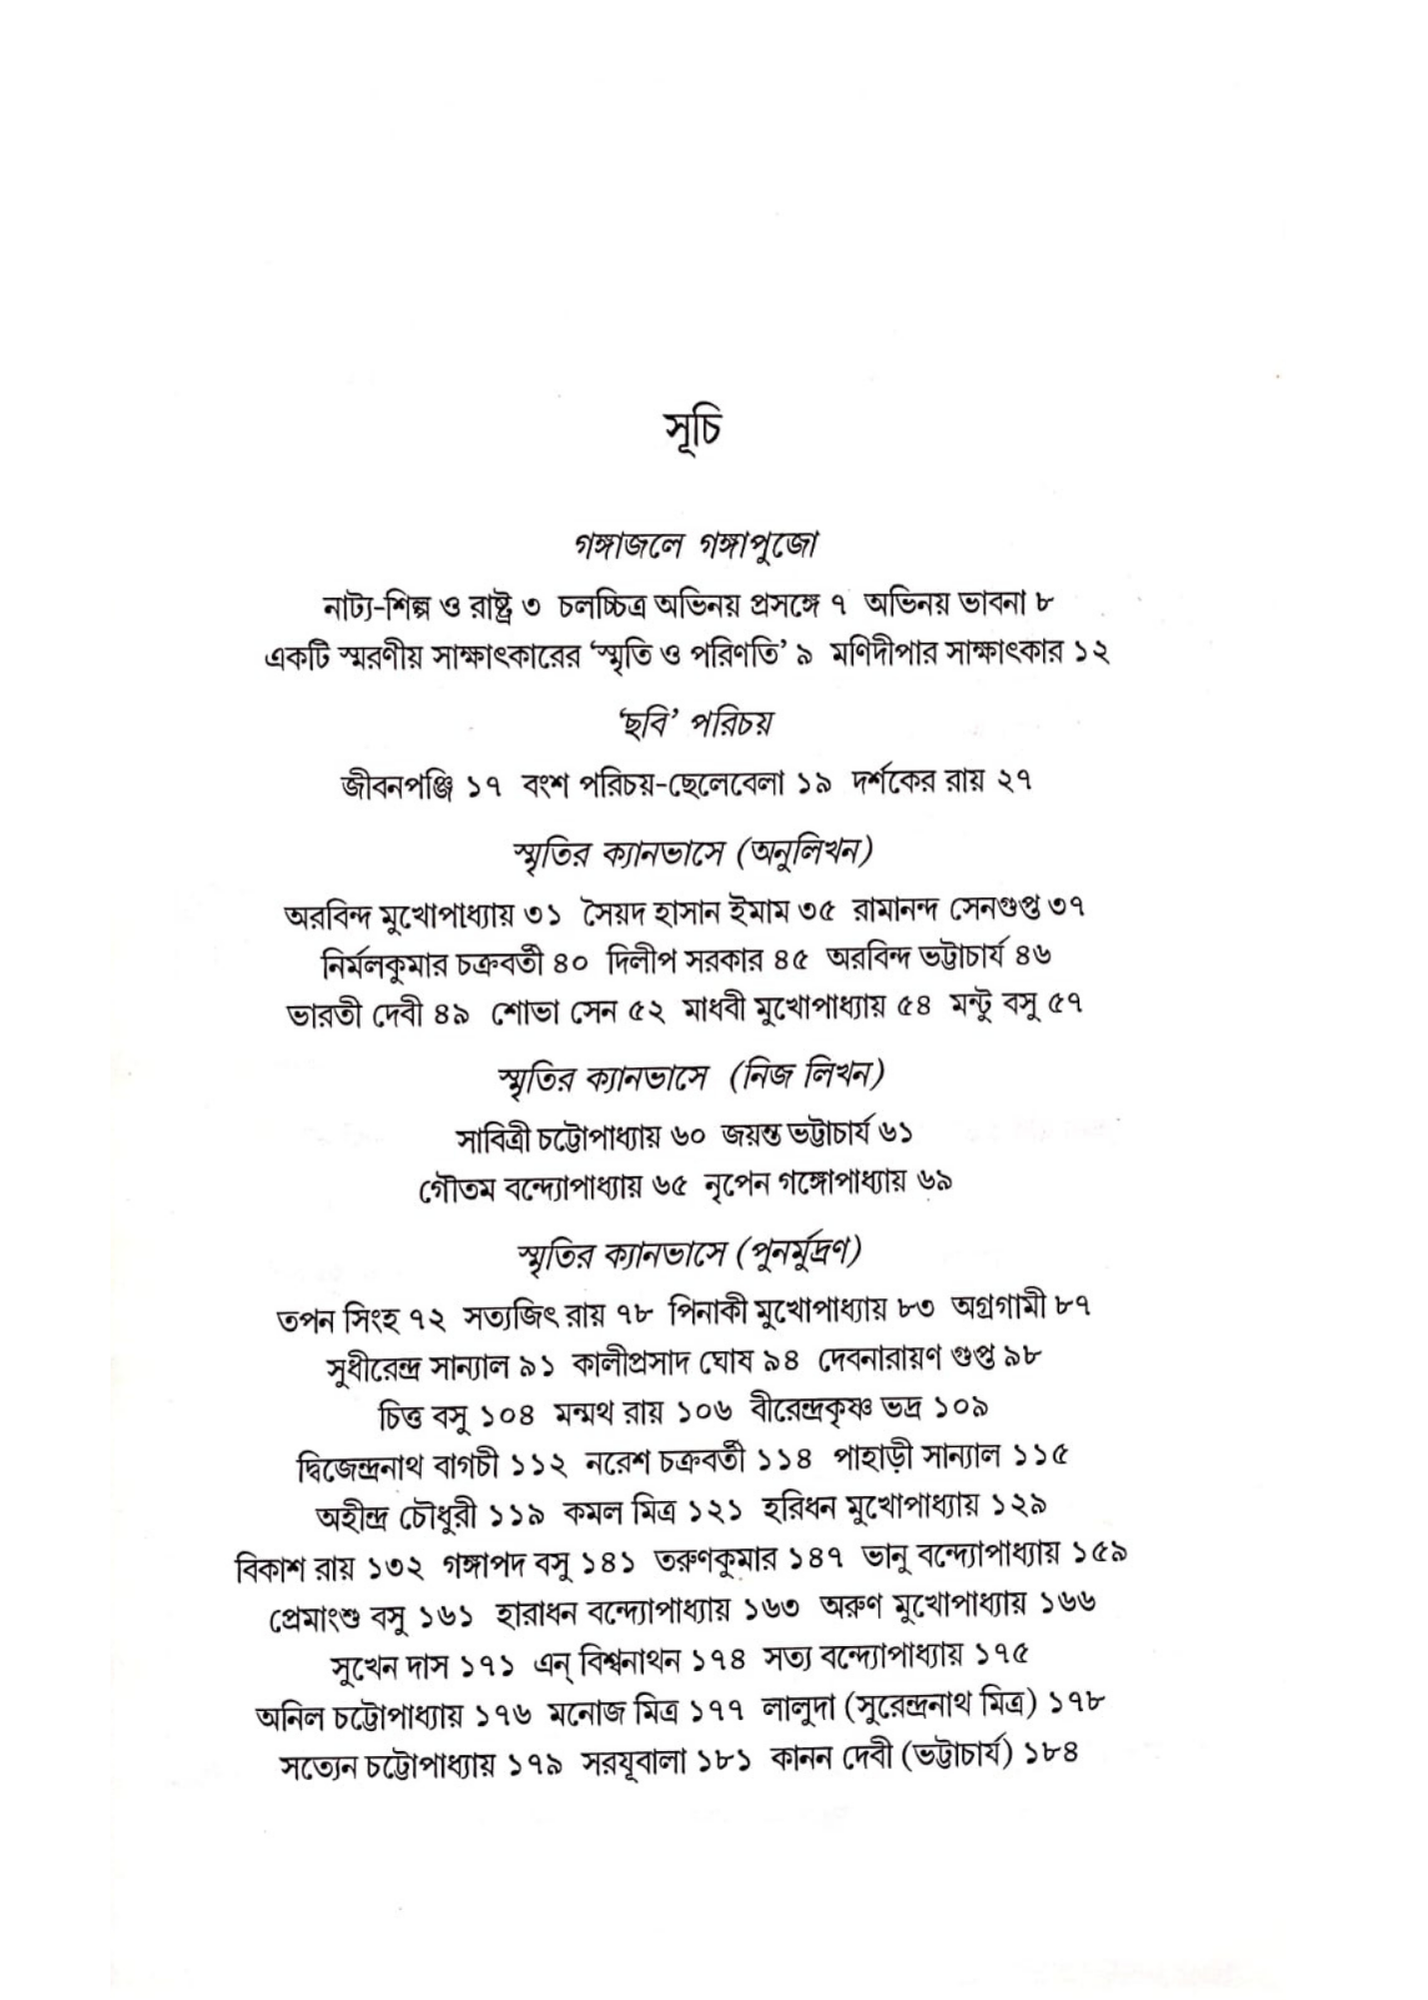 সূচি
গঙ্গাজলে গঙ্গাপুজো
নাট্য-শিল্প ও রাষ্ট্র ৩ চলচ্চিত্র অভিনয় প্রসঙ্গে ৭ অভিনয় ভাবনা ৮
একটি স্মরণীয় সাক্ষাৎকারের ‘স্মৃতি ও পরিণতি’ ৯ মণিদীপার সাক্ষাৎকার ১২
‘ছবি’ পরিচয়
জীবনপঞ্জি ১৭ বংশ পরিচয়-ছেলেবেলা ১৯ দর্শকের রায় ২৭
স্মৃতির ক্যানভাসে (অনুলিখন)
অরবিন্দ মুখোপাধ্যায় ৩১ সৈয়দ হাসান ইমাম ৩৫ রামানন্দ সেনগুপ্ত ৩৭
নির্মলকুমার চক্রবর্তী ৪০ দিলীপ সরকার ৪৫ অরবিন্দ ভট্টাচার্য ৪৬
ভারতী দেবী ৪৯ শোভা সেন ৫২ মাধবী মুখোপাধ্যায় ৫৪ মন্টু বসু ৫৭
স্মৃতির ক্যানভাসে (নিজ লিখন)
সাবিত্রী চট্টোপাধ্যায় ৬০ জয়ন্ত ভট্টাচার্য ৬১
গৌতম বন্দ্যোপাধ্যায় ৬৫ নৃপেন গঙ্গোপাধ্যায় ৬৯
স্মৃতির ক্যানভাসে (পুনর্মুদ্রণ)
তপন সিংহ ৭২ সত্যজিৎ রায় ৭৮ পিনাকী মুখোপাধ্যায় ৮৩ অগ্রগামী ৮৭
সুধীরেন্দ্র সান্যাল ৯১ কালীপ্রসাদ ঘোষ ৯৪ দেবনারায়ণ গুপ্ত ৯৮
চিত্ত বসু ১০৪ মন্মথ রায় ১০৬ বীরেন্দ্রকৃষ্ণ ভদ্র ১০৯
দ্বিজেন্দ্রনাথ বাগচী ১১২ নরেশ চক্রবর্তী ১১৪ পাহাড়ী সান্যাল ১১৫
অহীন্দ্র চৌধুরী ১১৯ কমল মিত্র ১২১ হরিধন মুখোপাধ্যায় ১২৯
বিকাশ রায় ১৩২ গঙ্গাপদ বসু ১৪১ তরুণকুমার ১৪৭ ভানু বন্দ্যোপাধ্যায় ১৫৯
প্রেমাংশু বসু ১৬১ হারাধন বন্দ্যোপাধ্যায় ১৬৩ অরুণ মুখোপাধ্যায় ১৬৬
সুখেন দাস ১৭১ এন্ বিশ্বনাথন ১৭৪ সত্য বন্দ্যোপাধ্যায় ১৭৫
অনিল চট্টোপাধ্যায় ১৭৬ মনোজ মিত্র ১৭৭ লালুদা (সুরেন্দ্রনাথ মিত্র) ১৭৮
সত্যেন চট্টোপাধ্যায় ১৭৯ সরযূবালা ১৮১ কানন দেবী (ভট্টাচার্য) ১৮৪